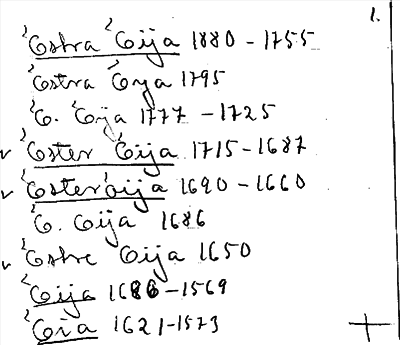 1.
Östra Öija 1880 - 1755
Östra Öya 1795
Ö. Öija 1777 - 1725
v Öster Öija 1715 - 1687
v Österöija 1690 - 1660
Ö. Öija 1686
v Östre Öija 1650
Öija 1686 - 1569
Öia 1621 - 1573